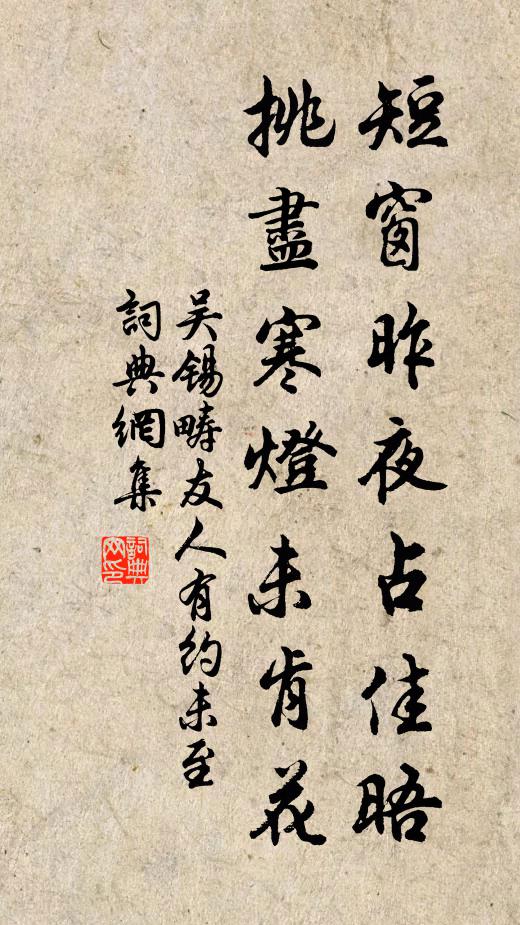 短窗昨夜占佳晤
挑盡寒燈未肯花
吴錫疇友人有約未至
詞典網集
詞典網印